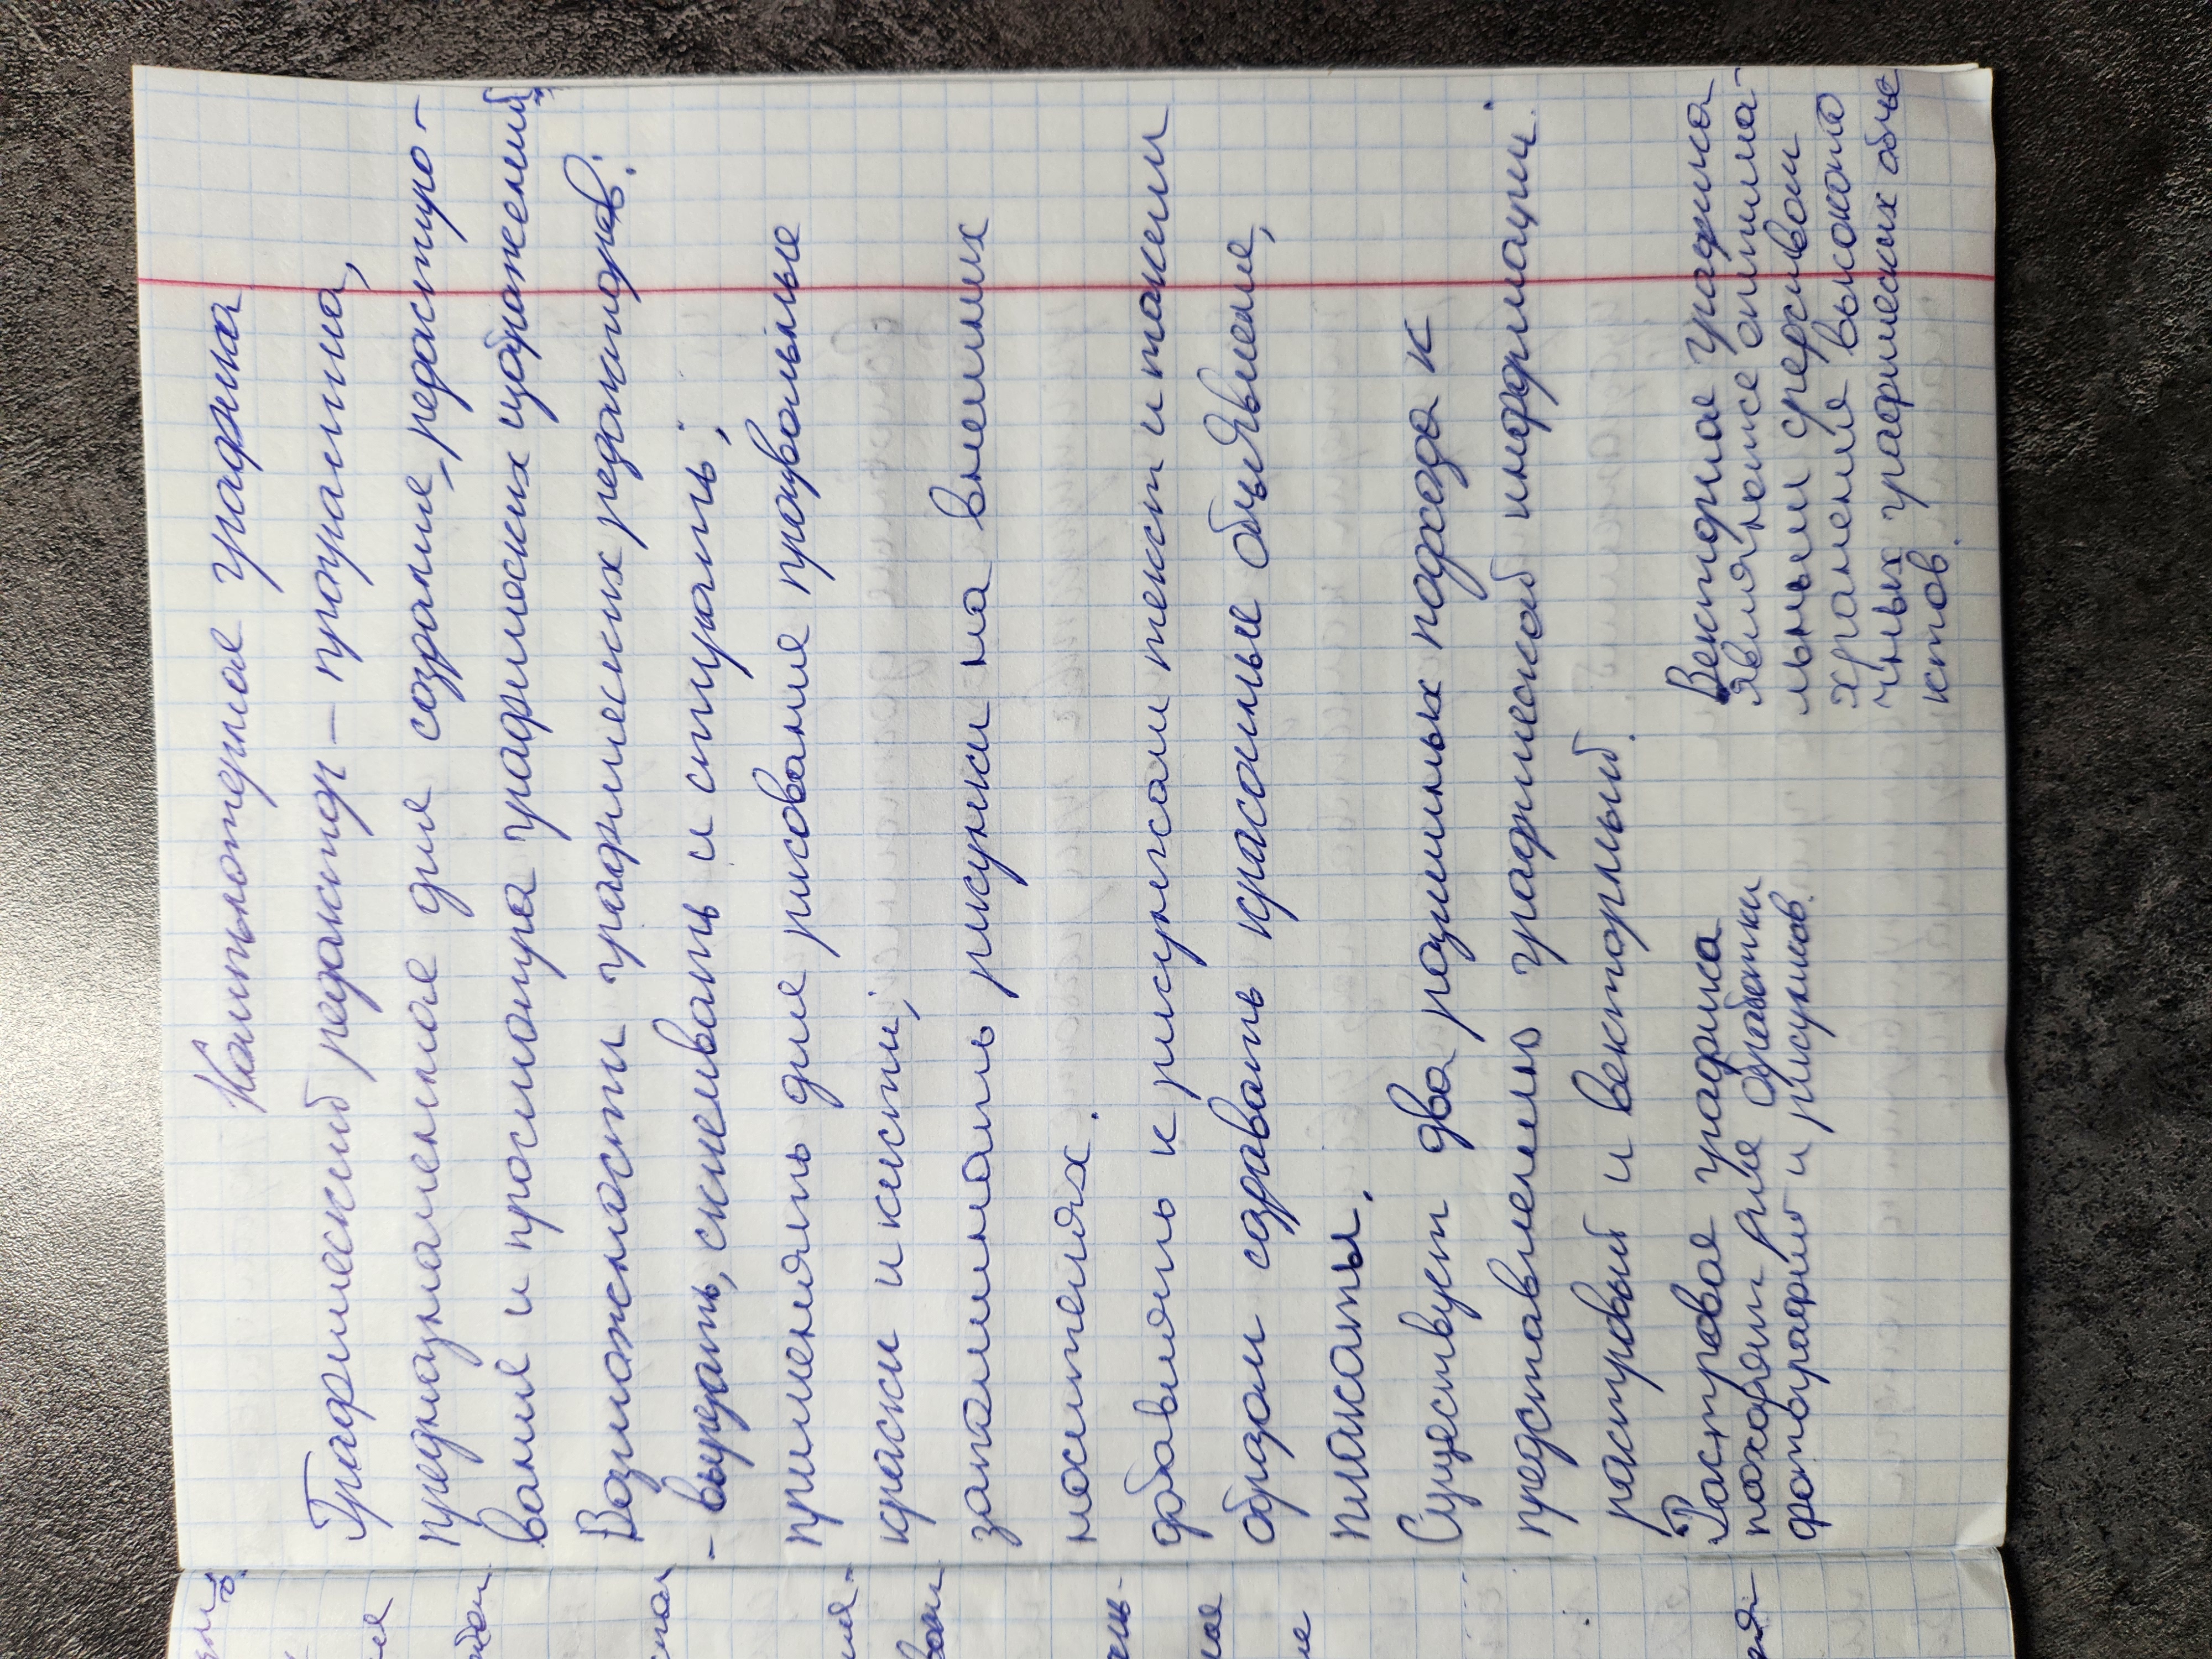 Компьютерная графика
Графический редактор – программа,
предназначенная для создание, редактиро-
вания и просмотра графических изображений.
Возможности графических редакторов:
– вырезать, склеивать и стирать;
применять для рисования произвольные
краски и кисти;
запоминать рисунки на внешних
носителях.
добавлять к рисункам текст и таким
образом создавать красочные объявление,
плакаты.
Существует два различных подхода к
представлению графической информации:
растровый и векторный.
Растровая графика
походят для обработки
фотографий и рисунков.
Векторная графика
являютсе оптима-
льными средсивом
хранения высокото
чных графических обче
ктов.